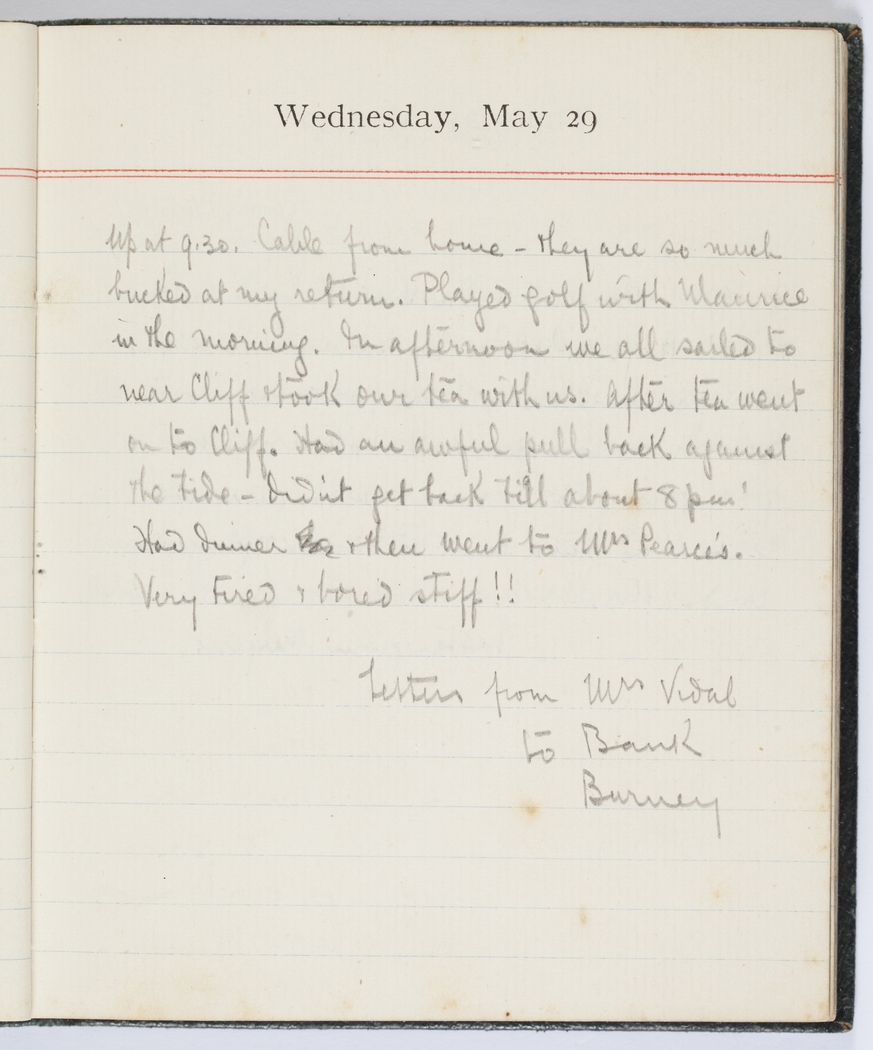 Wednesday, May 29
Up at 9.30. Cable from home - they are so much
bucked at my return. Played golf with Maurice
in the morning. In afternoon we all sailed to
near Cliff & took our tea with us. After tea went
on to Cliff. Had an awful pull back against
the tide - didn't get back till about 8 pm!
Had dinner & then went to Mrs Pearce's.
Very tired & bored stiff!!
Letters from Mrs Vidal
to Bank
Burney